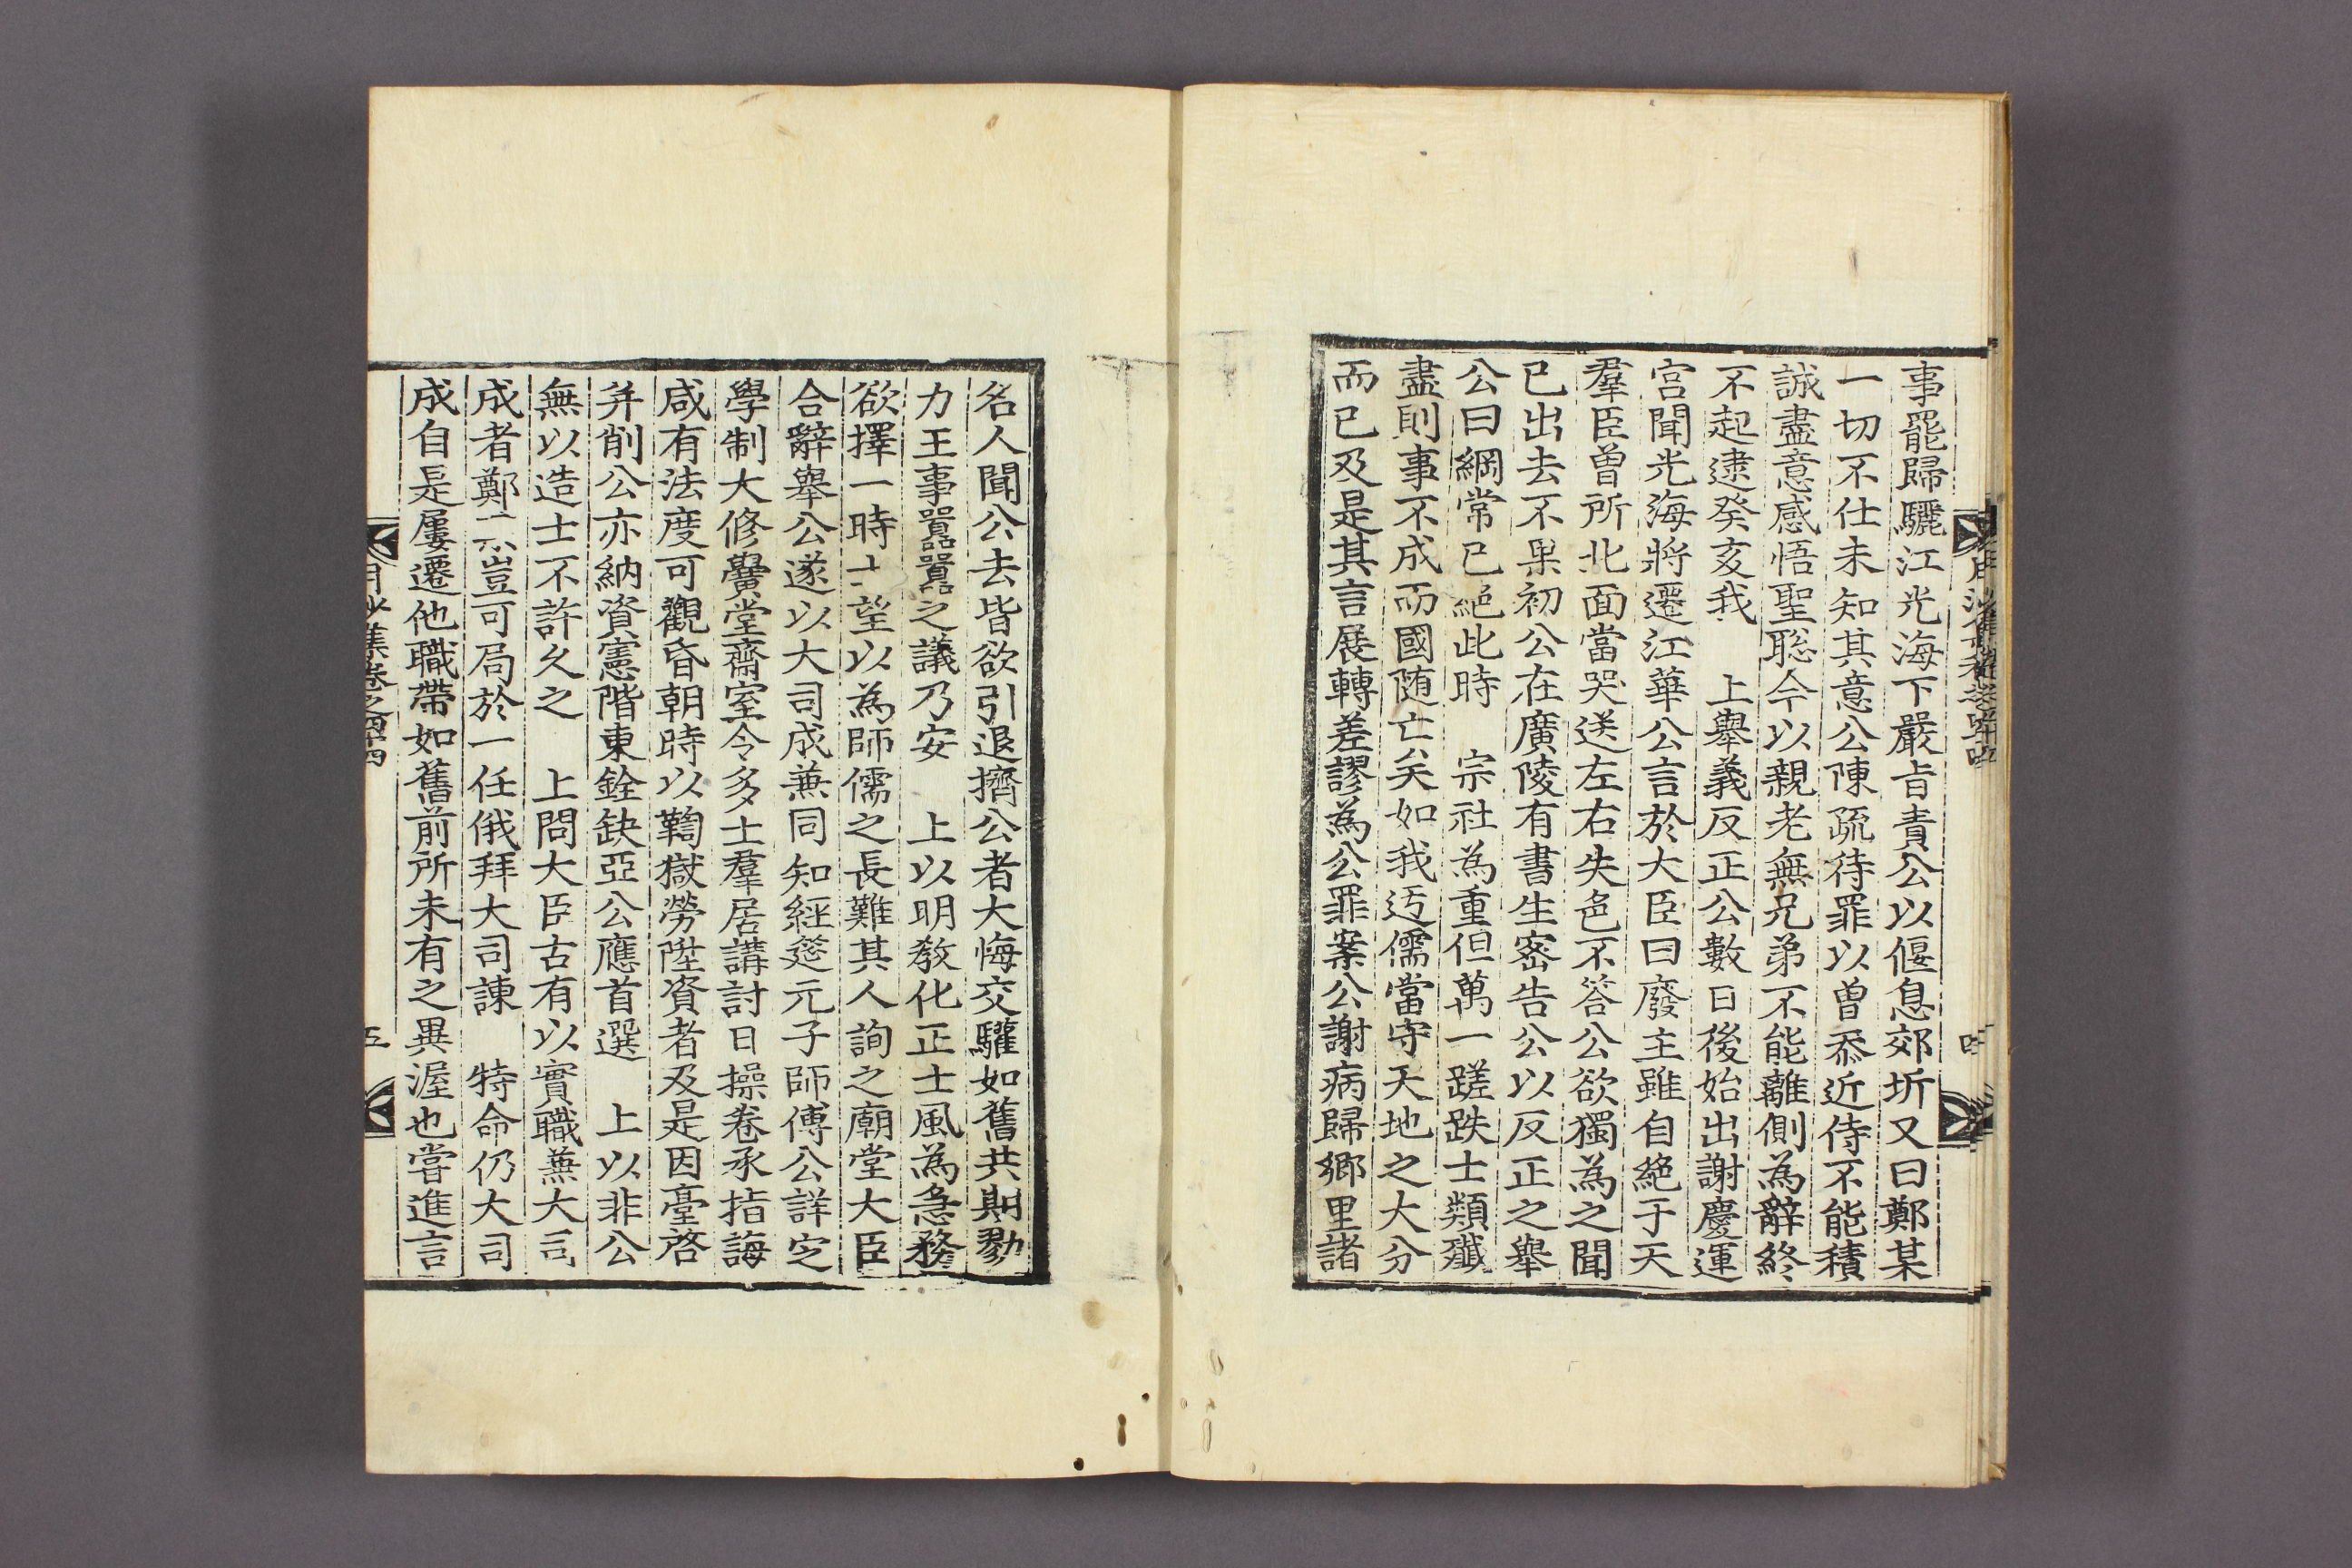 事罷歸驪江光海下嚴旨責公以偃息郊圻又曰鄭某
一切不仕未知其意公陳疏待罪以曾忝近侍不能積
誠盡意感悟聖聡今以親老無兄弟不能離側為辭終
不起逮癸亥我 上舉義反正公數日後始出謝慶運
宮聞光海將遷江華公言於大臣曰廢主雖自絕于天
羣臣曾所北面當哭送左右失色不答公欲獨為之聞
已出去不果初公在廣陵有書生密告公以反正之舉
公曰綱常已絕此時 宗社為重但萬一蹉跌士類殲
盡則事不成而國随亡矣如我迃儒當守天地之大分
而已及是其言展轉差謬為公罪案公謝病歸鄉里諸
名人聞公去皆欲引退擠公者大悔交驩如舊共期勠
力王事嚚嚚之議乃安 上以明教化正士風為急務
欲擇一時士望以為師儒之長難其人詢之廟堂大臣
合辭舉公遂以大司成兼同知經筵元子師傅公詳定
學制大修黌堂齋室令多士羣居講討日操卷承指誨
咸有法度可觀昏朝時以鞫獄勞陞資者及是因臺啓
并削公亦納資憲階東銓缺亞公應首選 上以非公
無以造士不許久之 上問大臣古有以實職兼大司
成者鄭豈可局於一任俄拜大司諫 特命仍大司
成自是屢遷他職帶如舊前所未有之異渥也嘗進言
月沙集卷之四十四 五